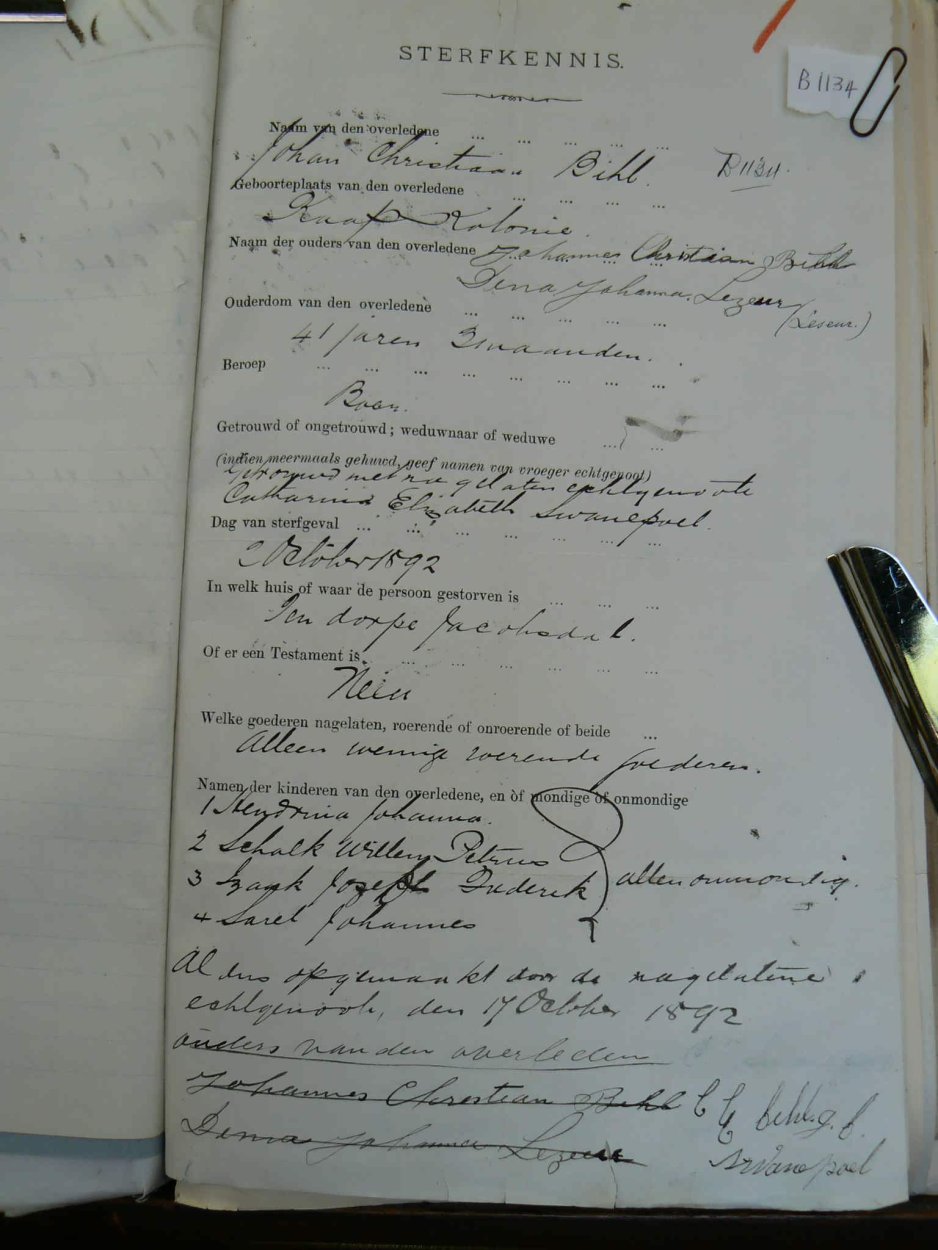 STERFKENNIS.
B1134
Naam van den overledene
Johan Christiaan Bihl. B1134.
Geboorteplaats van den overledene
Kaap Kolonie.
Naam der ouders van den overledene Johannes Christiaan Bihl
Dena Johanna Lezeur
(Leseur.)
Ouderdom van den overledene
41 jaren 3 maanden.
Beroep
Boer.
Getrouwd of ongetrouwd; weduwnaar of weduwe
(indien meermaals gehuwd, geef namen van vroeger echtgenoot)
Getrouwd met na gelaten echtgenoote
Catharina Elizabeth Swanepoel.
Dag van sterfgeval
2 October 1892
In welk huis of waar de persoon gestorven is
Ten dorpe Jacobsdal.
Of er een Testament is
Neen
Welke goederen nagelaten, roerende of onroerende of beide
Alleen wenige roerende goederen.
Namen der kinderen van den overledene, en òf mondige òf onmondige
1 Hendrina Johanna.
2 Schalk Willem Petrus
3 Izaak Joseph Frederik allen onmondig.
4 Sarel Johannes
Al dus opgemaakt door de nagelatene
echtgenoote, den 17 October 1892
ouders van den overleden
Johannes Christian Bihl C E Bihl g. b.
Dena Johanna Lezeur
Swanepoel